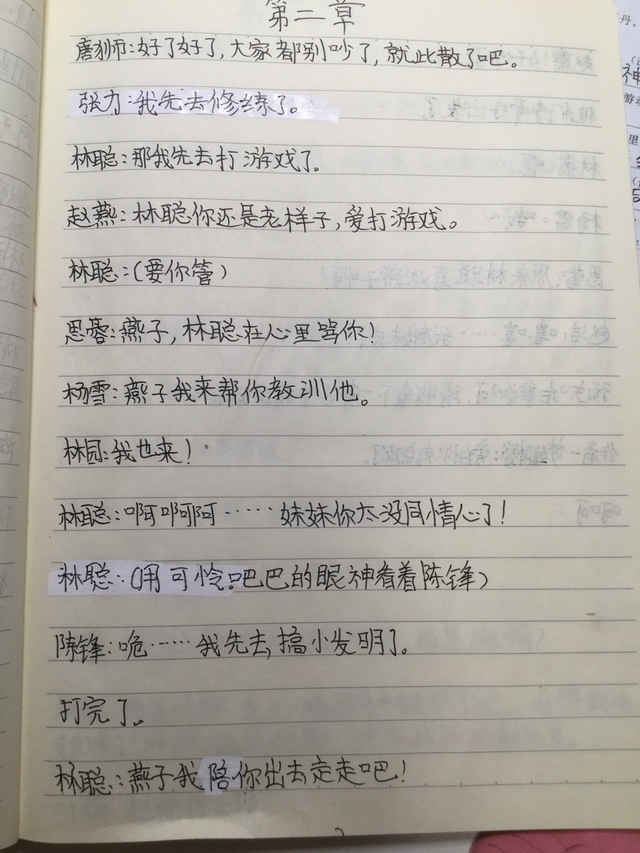 第二章
唐狮:好了好了,大家都别吵了,就此散了吧。
张力:我先去修练了。
林聪:那我先去打游戏了。
赵燕:林聪你还是老样子,爱打游戏。
林聪:(要你管)
思蓉:燕子,林聪在心里骂你!
杨雪:燕子我来帮你教训他。
林园:我也来!
林聪:啊啊啊……妹妹你太没同情心了!
林聪:(用可怜吧巴的眼神看着陈锋)
陈锋:咆……我先去搞小发明了。
打完了。
林聪:燕子我陪你出去走走吧!